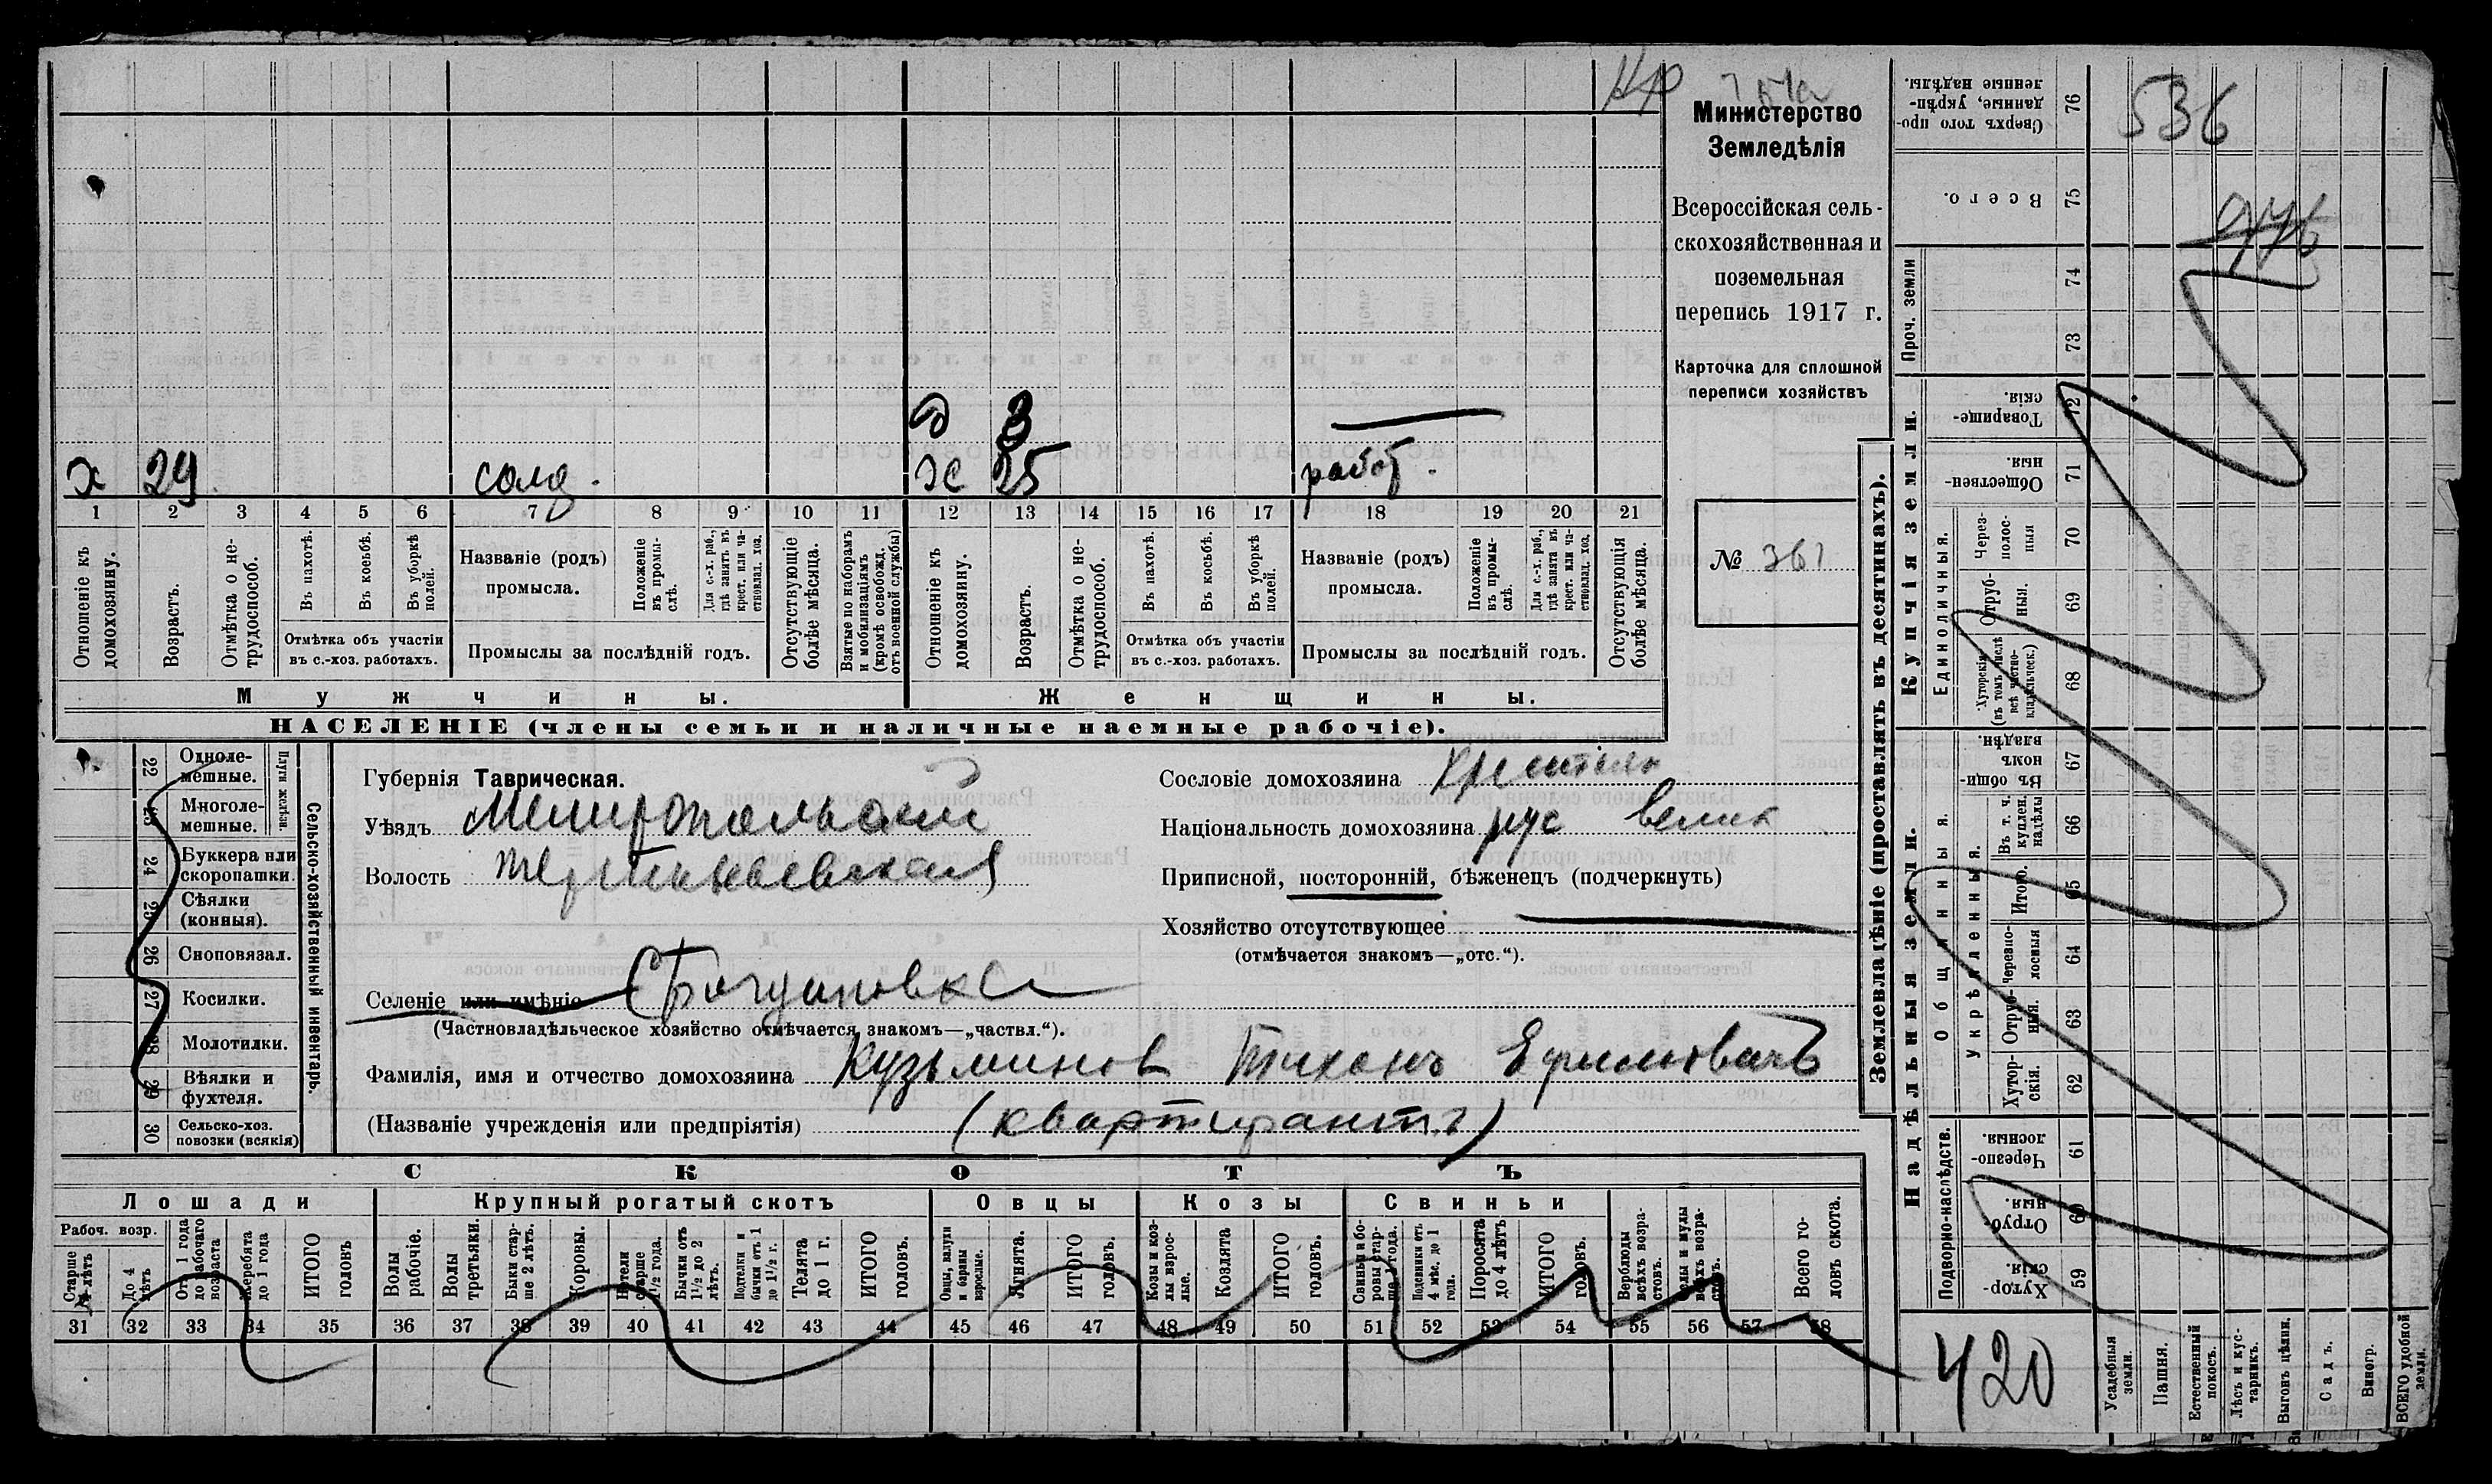 Министерство
Земледѣлія
Всероссійская сель-
скохозяйственная и
поземельная
перепись 1917 г.
Карточка для сплошной
переписи хозяйствъ
№ 361
х 29 солд. ж 25 работ.
д 3
1 2 3 4 5 6 7 8 9 10 11 12 13 14 15 16 17 18 19 20 21
Отношеніе къ домохозяину.
Возрастъ.
Отмѣтка о не-трудоспособ.
Въ пахотѣ.
Въ косьбѣ.
Въ уборкѣ полей.
Отмѣтка объ участіи
въ с.-хоз. работахъ.
Названіе (родъ)
промысла.
Положеніе въ промы-слѣ.
Для с.-х. раб., гдѣ занятъ въ крест. или ча-стновлад. хоз.
Промыслы за послѣдній годъ.
Отсутствующіе болѣе мѣсяца.
Взятые по наборамъ и мобилизаціямъ (кромѣ освобожд. отъ военной службы)
Отношеніе къ домохозяину.
Возрастъ.
Отмѣтка о не-трудоспособ.
Въ пахотѣ.
Въ косьбѣ.
Въ уборкѣ полей.
Отмѣтка объ участіи
въ с.-хоз. работахъ.
Названіе (родъ)
промысла.
Положеніе въ промы-слѣ.
Для с.-х. раб., гдѣ занята въ крест. или ча-стновлад. хоз.
Промыслы за послѣдній годъ.
Отсутствующія болѣе мѣсяца.
Мужчины.
Женщины.
НАСЕЛЕНІЕ (члены семьи и наличные наемные рабочіе).
Сельско-хозяйственный инвентарь.
Плуги желѣзн.
22 Одноле-мешные.
23 Многоле-мешные.
24 Буккера или скоропашки.
25 Сѣялки (конныя).
26 Сноповязал.
27 Косилки.
28 Молотилки.
29 Вѣялки и фухтеля.
30 Сельско-хоз. повозки (всякія)
Губернія Таврическая.
Уѣздъ Мелитопольский
Волость
Селеніе или имѣніе С Богдановка
(Частновладѣльческое хозяйство отмѣчается знакомъ—„частвл.“).
Фамилія, имя и отчество домохозяина Кузьминов Тихонъ Ефимовичъ
(Названіе учрежденія или предпріятія) (квартирантъ)
Сословіе домохозяина
Національность домохозяина рус велик
Приписной, посторонній, бѣженецъ (подчеркнуть)
Хозяйство отсутствующее
(отмѣчается знакомъ—„отс.“).
СКОТЪ
Лошади
Крупный рогатый скотъ
Овцы
Козы
Свиньи
Рабоч. возр.
Старше 4 лѣтъ
До 4 лѣтъ
Отъ 1 года до рабочаго возраста
Жеребята до 1 года
ИТОГО головъ
Волы рабочіе.
Волы третьяки.
Быки стар-ше 2 лѣтъ.
Коровы.
Нетели старше 1½ года.
Бычки отъ 1½ до 2 лѣтъ.
Подтелки и бычки отъ 1 до 1½ г.
Телята до 1 г.
ИТОГО головъ.
Овцы, валухи и бараны взрослые.
Ягнята.
ИТОГО головъ.
Козы и коз-лы взрос-лые.
Козлята
ИТОГО головъ.
Свиньи и бо-ровы стар-ше 1 года.
Подсвинки отъ 4 мѣс. до 1 года.
Поросята до 4 лѣтъ
ИТОГО головъ.
Верблюды всѣхъ возра-стовъ.
Ослы и мулы всѣхъ возра-стовъ.
Всего го-ловъ скота.
31 32 33 34 35 36 37 38 39 40 41 42 43 44 45 46 47 48 49 50 51 52 53 54 55 56 57 58
Землевладѣніе (проставлять въ десятинахъ).
Купчія земли.
Надѣльныя земли.
Сверхъ того про-данные, укрѣп-ленные надѣлы. 76
Всего. 75
Проч. земли 74 73
Товарище-скія. 72
Обществен-ныя. 71
Единоличныя.
Через-полос-ныя 70
Отруб-ныя. 69
Хуторскія (въ томъ числѣ всѣ частно-владѣльческ.) 68
Общинныя.
Въ общин-номъ владѣн. 67
Укрѣпленныя.
Въ т. ч. куплен. надѣлы 66
Итого. 65
Черезпо-лосныя 64
Отруб-ныя. 63
Хутор-скія. 62
Подворно-наслѣдств.
Черезпо-лосныя. 61
Отруб-ныя. 60
Хутор-скія. 59
536
976
420
Усадебныя земли.
Пашня.
Естественный покосъ.
Лѣсъ и кус-тарникъ.
Выгонъ цѣлин.
Садъ.
Виногр.
ВСЕГО удобной земли.